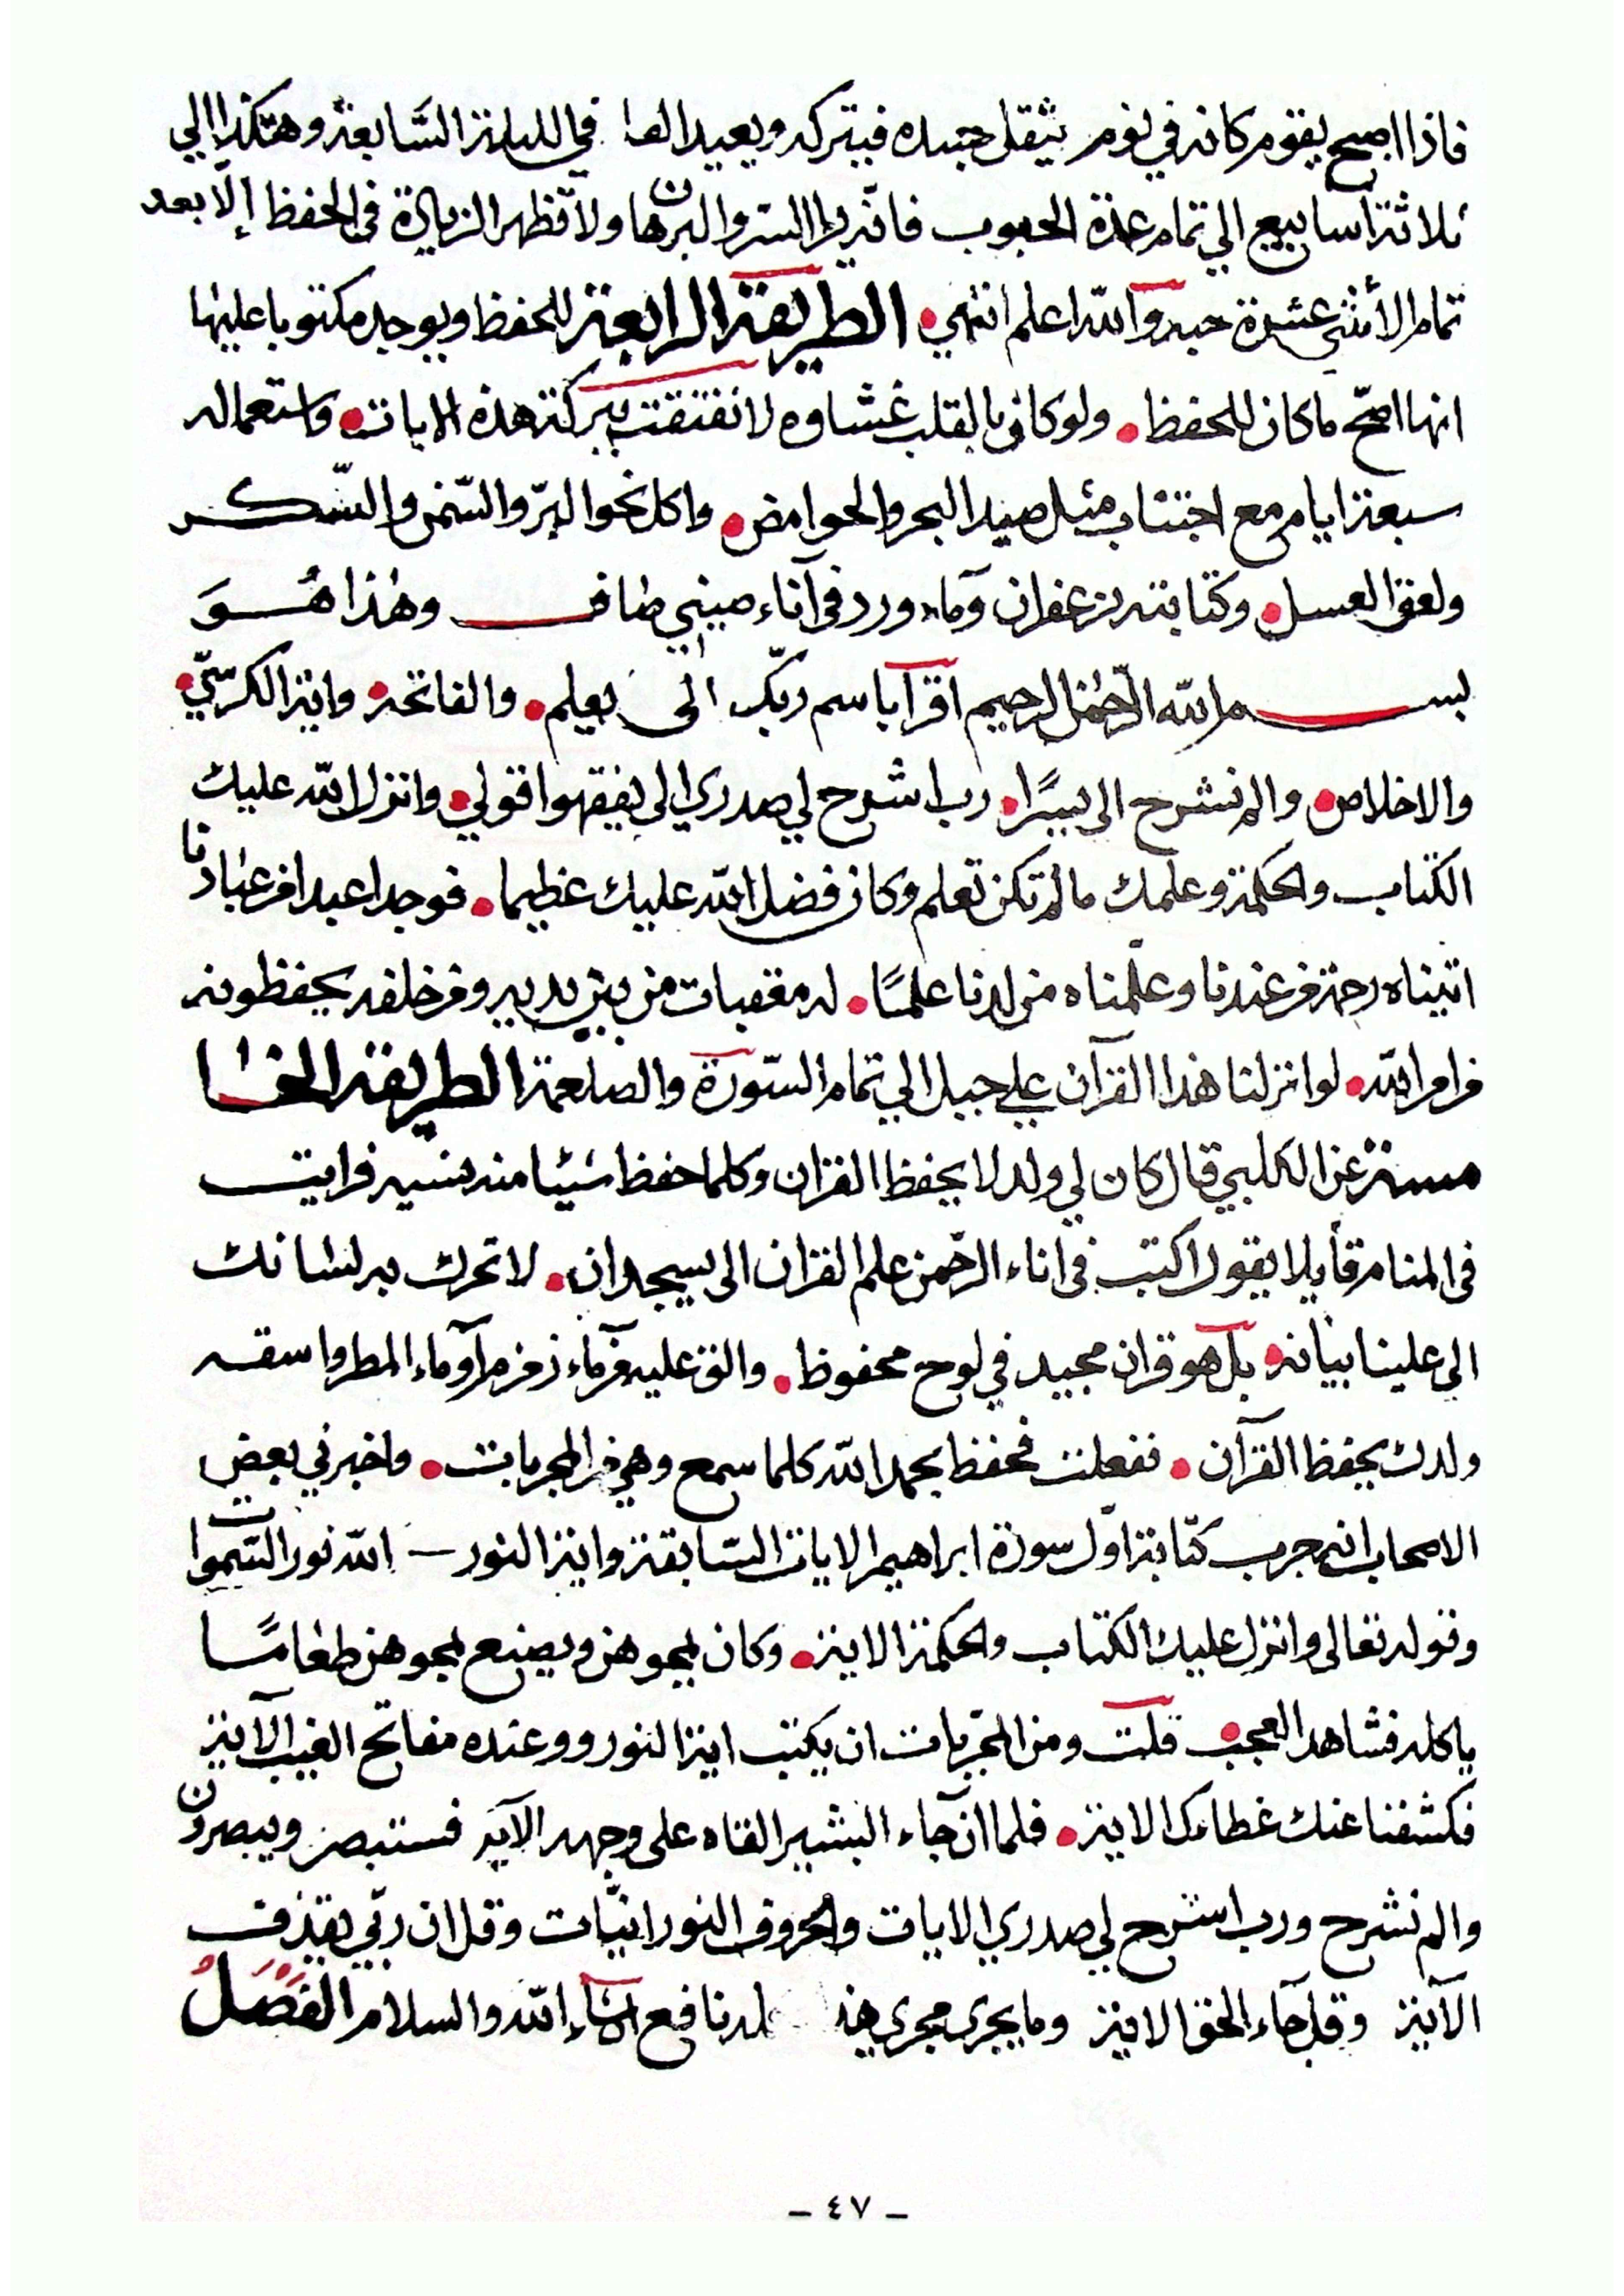 فاذا اصبح يقوم كانه في نوم يثقل جسده فيتركه ويعيد في الليلة السَّابعة وهكذا الي
ثلاثة اسابيع الي تمام عدة الحبوب فانه يرا السر والبرهان ولا تظهر الزيادة في الحفظ إلا بعد
تمام الأثني عشرة حبه والله اعلم انتهي الطريقة الرابعة للحفظ ويوجد مكتوبا عليها
انها اصحّ ما كان للحفظ ولو كان بالقلب غشاوه لانفتقت ببركة هذه الايات واستعماله
سبعة ايام مع اجتناب مثل صيد البحر والحوامض واكل نحو البرّ والسّمن والسّكر
ولعق العسل وكتابته بزعفران وماء ورد في آناء صيني طاف وهٰذا هُوَ
بسم الله الرّحمٰن الرحيم اقرآ باسم ربّك الى يعلم والفاتحة واية الكرسّي
والاخلاص والم نشرح الى يسرًا رب اشرح لي صدري الى يفقهوا قولي وانزل الله عليك
الكتاب والحكمة وعلمك ما لم تكن تعلم وكان فضل الله عليك عظيما فوجدا عبدا من عبادنا
اتيناه رحمة من عندنا وعلّمناه من لدنا علمًا له معقبات من بين يديه ومن خلفه يحفظونه
من امر الله لو انزلنا هذا القرآن علي جبل الي تمام السّورة والصلعمة الطريقة الخا
مسة عن الكلبي قال كان لي ولد لا يحفظ القران وكلما حفظ شيئا منه نسيه فرايت
في المنام قأيلا يقول اكتب في اناء الرّحمن علم القران الى يسجدان لا تحرك به لسانك
الى علينا بيانه بل هو قران مجيد في لوح محفوظ والق عليه من مآء زمزم آو ماء المطر واسقه
ولدك يحفظ القرآن ففعلت فحفظ بحمد الله كلما سمع وهي من المجربات واخبرني بعض
الاصحاب انه جرب كتابة اوّل سورة ابراهيم الايات السّابقة واية النور – الله نور السّموات
وقوله تعالى وانزل عليك الكتاب والحكمة الاية وكان يمحوهن ويصنع بمحوهن طعامًا
ياكله فشاهد العجب قلت ومن المجّربات ان يكتب اية النور ووعنده مفاتح الغيب الآية
فكشفنا عنك غطاءك الاية فلما ان جاء البشير القاه على وجهه الآية فستبصر ويبصرون
والم نشرح ورب اشرح لي صدري الايات والحروف النورانيّات وقل ان ربّي يقذف
الآية وقل جاء الحق الاية وما يجري مجري نافع انشاء الله والسلام الفَصْلُ
- ٤٧ -